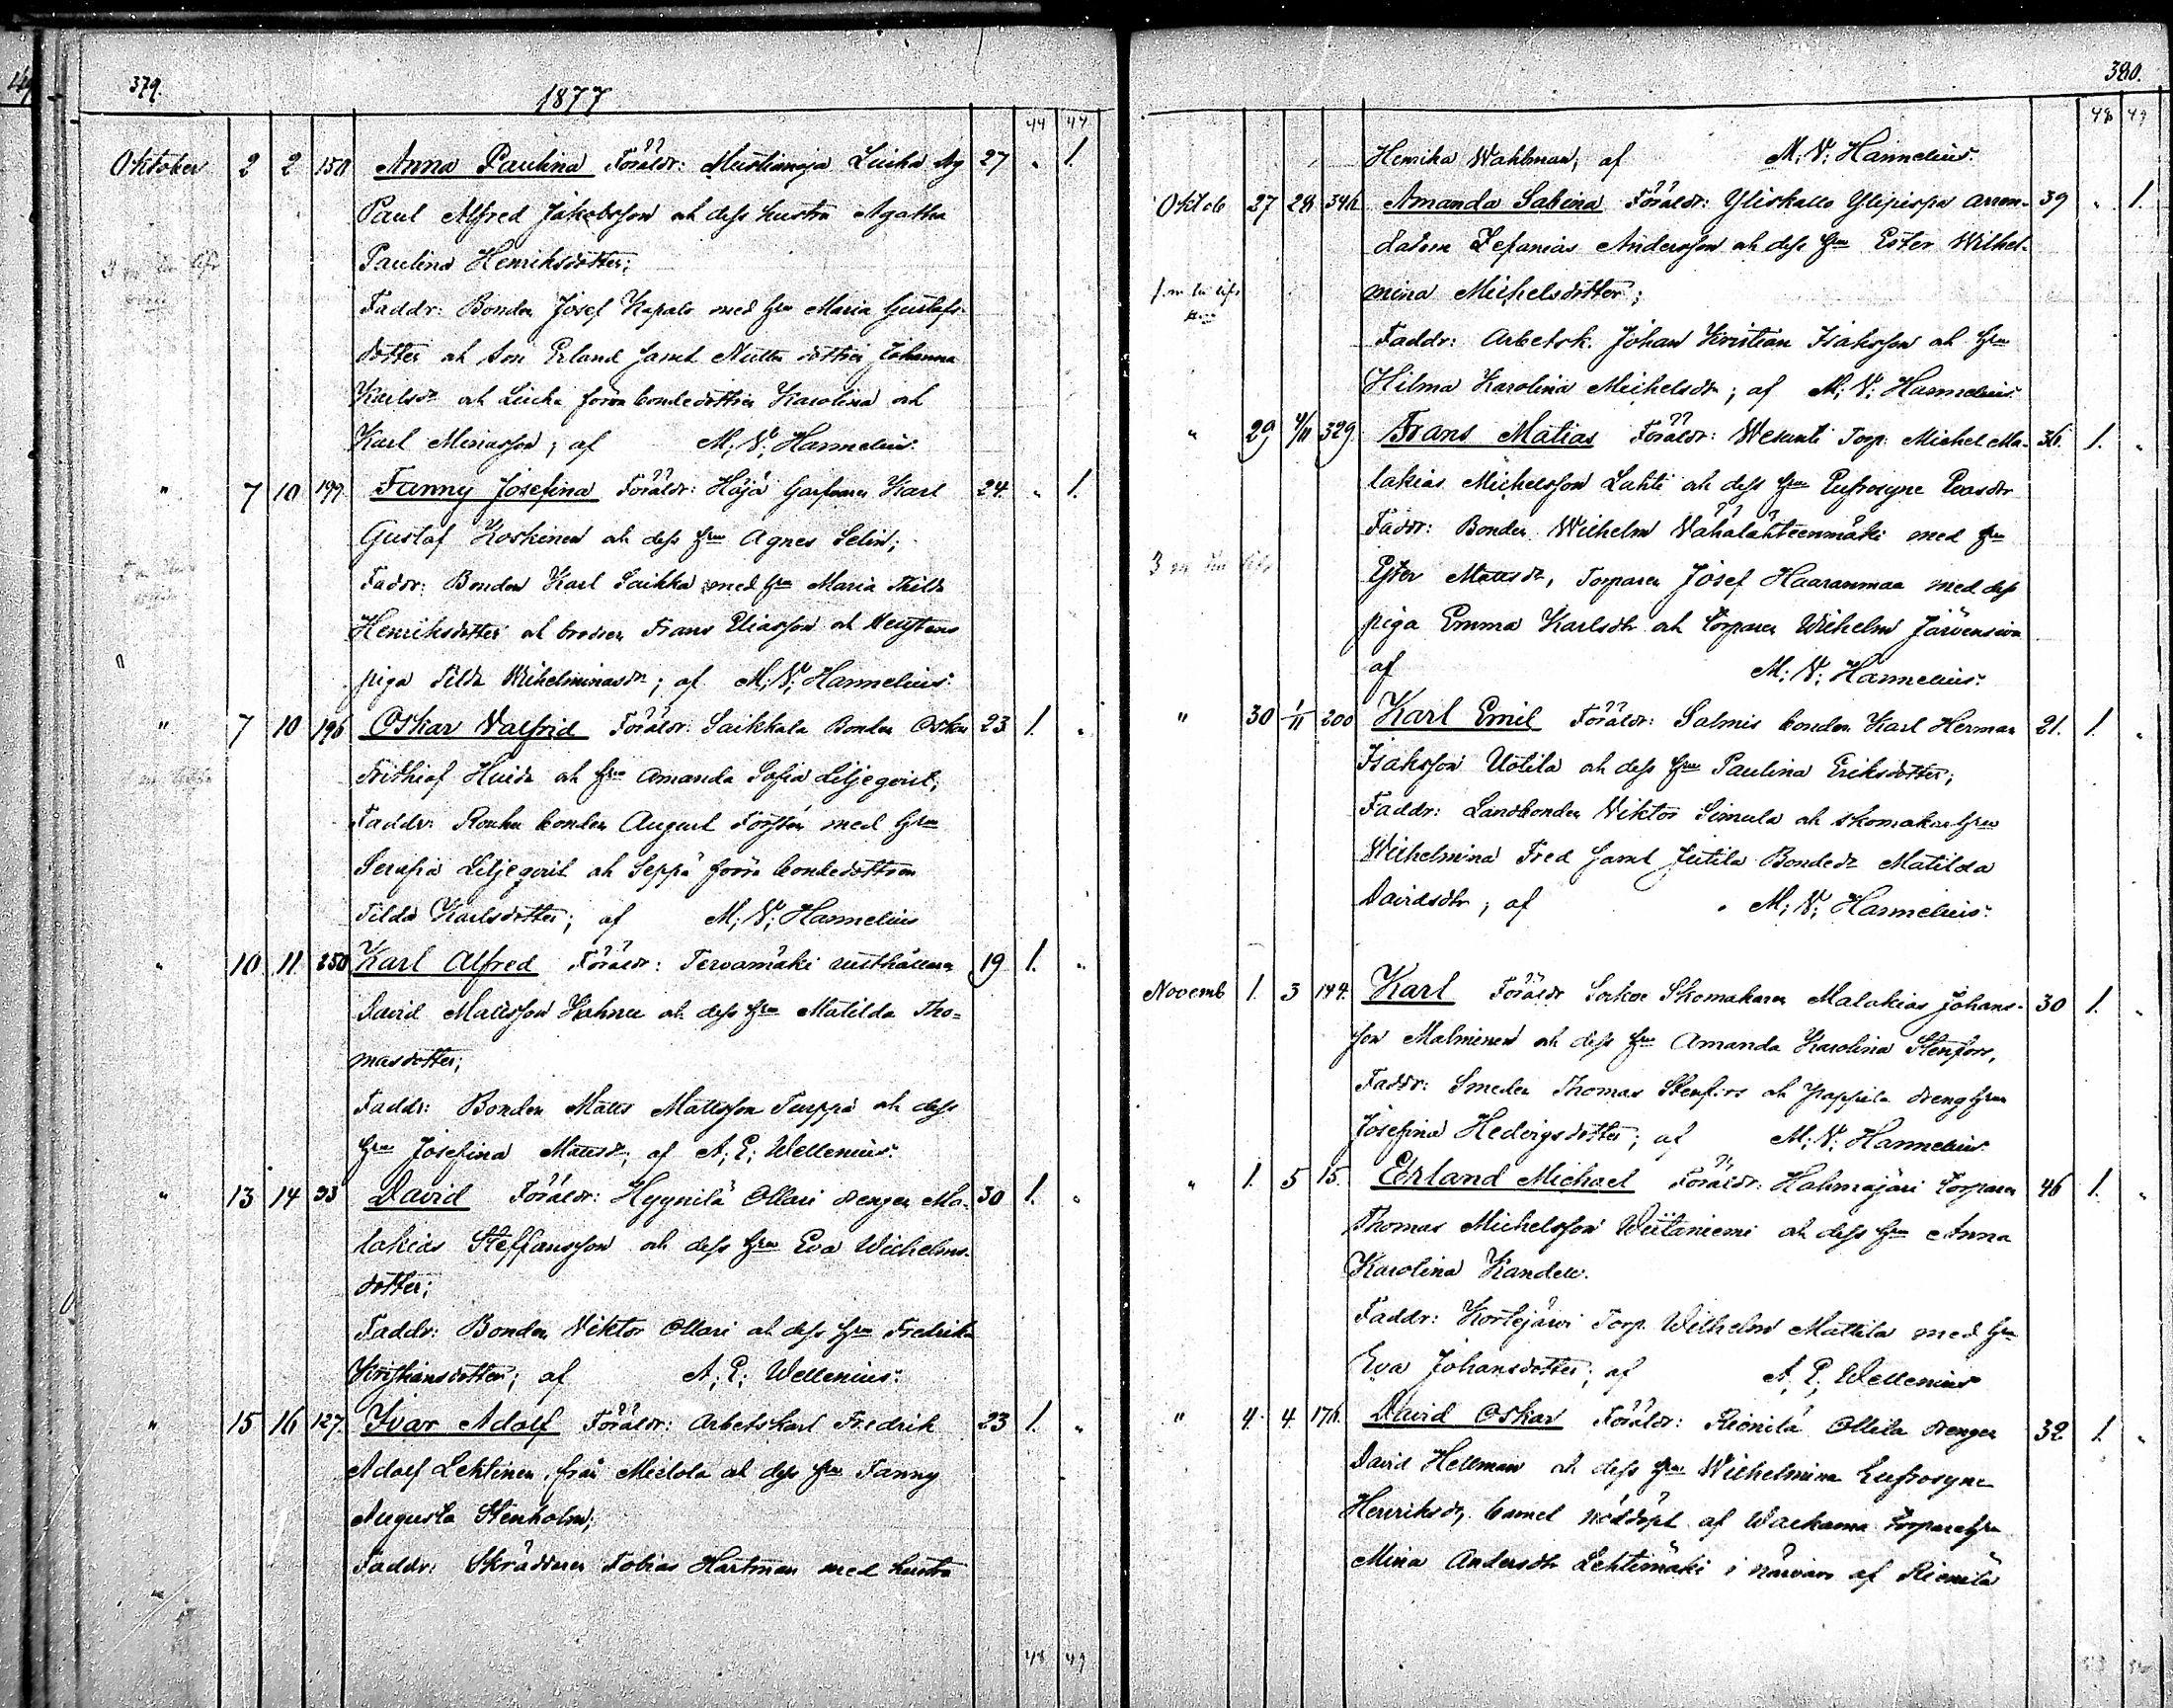 379.
1877
44 44
Oktober 2 2 150 Anna Paulina Föräldr: Mustianoja Luika
27 " 1.
Paul Alfred Jakobsson och dess hustru Agatha
Paulina Henriksdotter;
Faddr: Bonden Josef Kapalo med hru Maria Gustafs-
dotter och son Erland samt dottren Johanna
Karlsdr och förra bondedottren Karolina och
Karl; af M; N; Hannelius.
" 7 10 199 Fanny Josefina Föräldr: Höjä Karl 24 " 1.
Gustaf Koskinen och dess hru Agnes Selin;
Faddr: Bonden Karl Saikka med hru Maria
Henriksdotter och brodren Frans Eliasson och
piga Tilda Wilhelminasdr; af M; N; Hannelius.
" 7 10 196 Oskar Valfrid Föräldr: Saikkala Bonden Oskar 23 1. "
Frithiof Huida och hru Amanda Sofia Liljeqvist;
Faddr: Bonden August med hru
Serafia Liljeqvist och Seppä förra bondedottren
Tilda Karlsdotter; af M; N; Hannelius
" 10 11 250 Karl Alfred Föräldr: Tervamäki rusthållaren 19 1. "
David Mattsson och dess hru Matilda Tho=
masdotter;
Faddr: Bonden Matts Mattsson och dess
hru Josefina Mattsdr; af A; E; Wellenius.
" 13 14 33 David Föräldr: Hyynilä Ollari drengen Ma- 30 1. "
lakias Steffansson och dess hru Eva Wilhelms-
dotter;
Faddr: Bonden Viktor Ollari och dess hru Fredrika
Kristiansdotter; af A; E; Wellenius.
" 15 16 127. Ivar Adolf Föräldr: Arbetskarl Fredrik 23 1. "
Adolf Lehtinen, från och dess hru Fanny
Augusta Stenholm;
Faddr: Skräddaren Tobias Hartman med hustru
48 49
380.
48 49
Henrika Wahlman; af M; N; Hannelius.
Oktob 27 28 346. Amanda Sabina Föräldr: Yliskallo Ylipispa arren- 39 " 1.
datorn Zefanias Andersson och dess hru Ester Wilhel-
mina Michelsdotter;
Faddr: Arbetsk. Johan Kristian Isaksson och hru
Hilma Karolina Michelsdr; af M; N; Hannelius.
" 29 4/11 329 Frans Matias Föräldr: Wesunti Torp. Michel Ma- 36. 1. "
lakias Michelsson Lahti och dess hru Eufrosyne Evasdtr
Faddr: Bonden Wilhelm Vähälähteenmäki med hru
Ester Mattsdr, Torparen Josef Haaranmaa med dess
piga Emma Karlsdtr och torparen Wilhelm Järvensivu
af M; N; Hannelius.
" 30 1/11 200 Karl Emil Föräldr: Salmis bonden Karl Herman 21. 1. "
Isaksson Uotila och dess hru Paulina Eriksdotter;
Faddr: Landbonden Viktor Simula och skomakarehru
Wilhelmina Fred samt Juitila Bondedr Matilda
Davidsdtr; af M; N; Hannelius.
Novemb 1. 3 144. Karl Föräldr Skomakaren Malakias Johans- 30 1. "
son Malminen och dess hru Amanda Karolina Stenfors,
Faddr: Smeden Thomas Stenfors och Pappila drenghru
Josefina Hedvigsdotter; af M; N: Hannelius.
" 1. 5 15. Erland Michael Föräldr: Hahmajärvi Torparen 46 1. "
Thomas Michelsson Wiitaniemi och dess hru Anna
Karolina Kandell.
Faddr: Kortejärvi Torp. Wilhelm Mattila med hru
Eva Johansdotter; af A; E; Wellenius
" 4. 4. 176. David Oskar Föräldr: Rienilä Ollila drengen 32 1. "
David Hellman och dess hru Wilhelmina Eufrosyne
Henriksdr, barnet nöddöpt af Torparehru
Mina Andersdtr Lehtimäki i närvaro af Rienilä